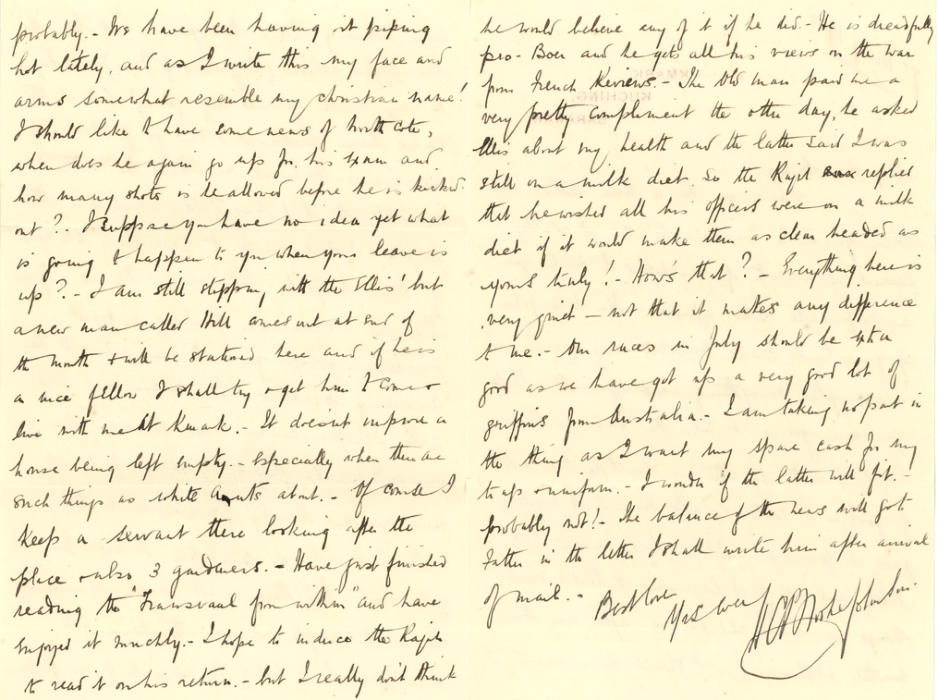 probably. - We have been having it piping
hot lately, and as I write this my face and
arms somewhat resemble my christian name!
I should like to have some news of Northcote,
when does he again go up for his exam and
how many shots is he allowed before he is kicked
out? - I suppose you have no idea yet what
is going to happen to you when your leave is
up? - I am still stopping with the Ellis' but
a new man called Hill comes out at end of
the month & will be stationed here and if he is
a nice fellow I shall try & get him to come &
live with me at . - It doesn't improve a
house being left empty. - especially when there are
such things as white ants about. - Of course I
keep a servant there looking after the
place & also 3 gardeners. - Have just finished
reading the "Transvaal from within" and have
enjoyed it muchly. - I hope to induce the Rajah
to read it on his return. - but I really don't think
he would believe any of it if he did - He is dreadfully
pro-Boer and he gets all his views on the war
from French Reviews. - The Old man paid me a
very pretty compliment the other day, he asked
Ellis about my health and the latter said I was
still on a milk diet. So the Rajah replied
that he wished all his officers were on a milk
diet if it would make them as clear headed as
yours truly! - How's that? - Everything here is
very quiet - not that it makes any difference
to me. - Our races in July should be extra
good as we have got up a very good lot of
griffins from Australia. - I am taking no part in
the thing as I want my spare cash for my
togs & uniform. - I wonder if the latter will fit. -
probably not! - The balance of the news will got
Father in the letter I shall write him after arrival
of mail. -
Best love
Yrs ever